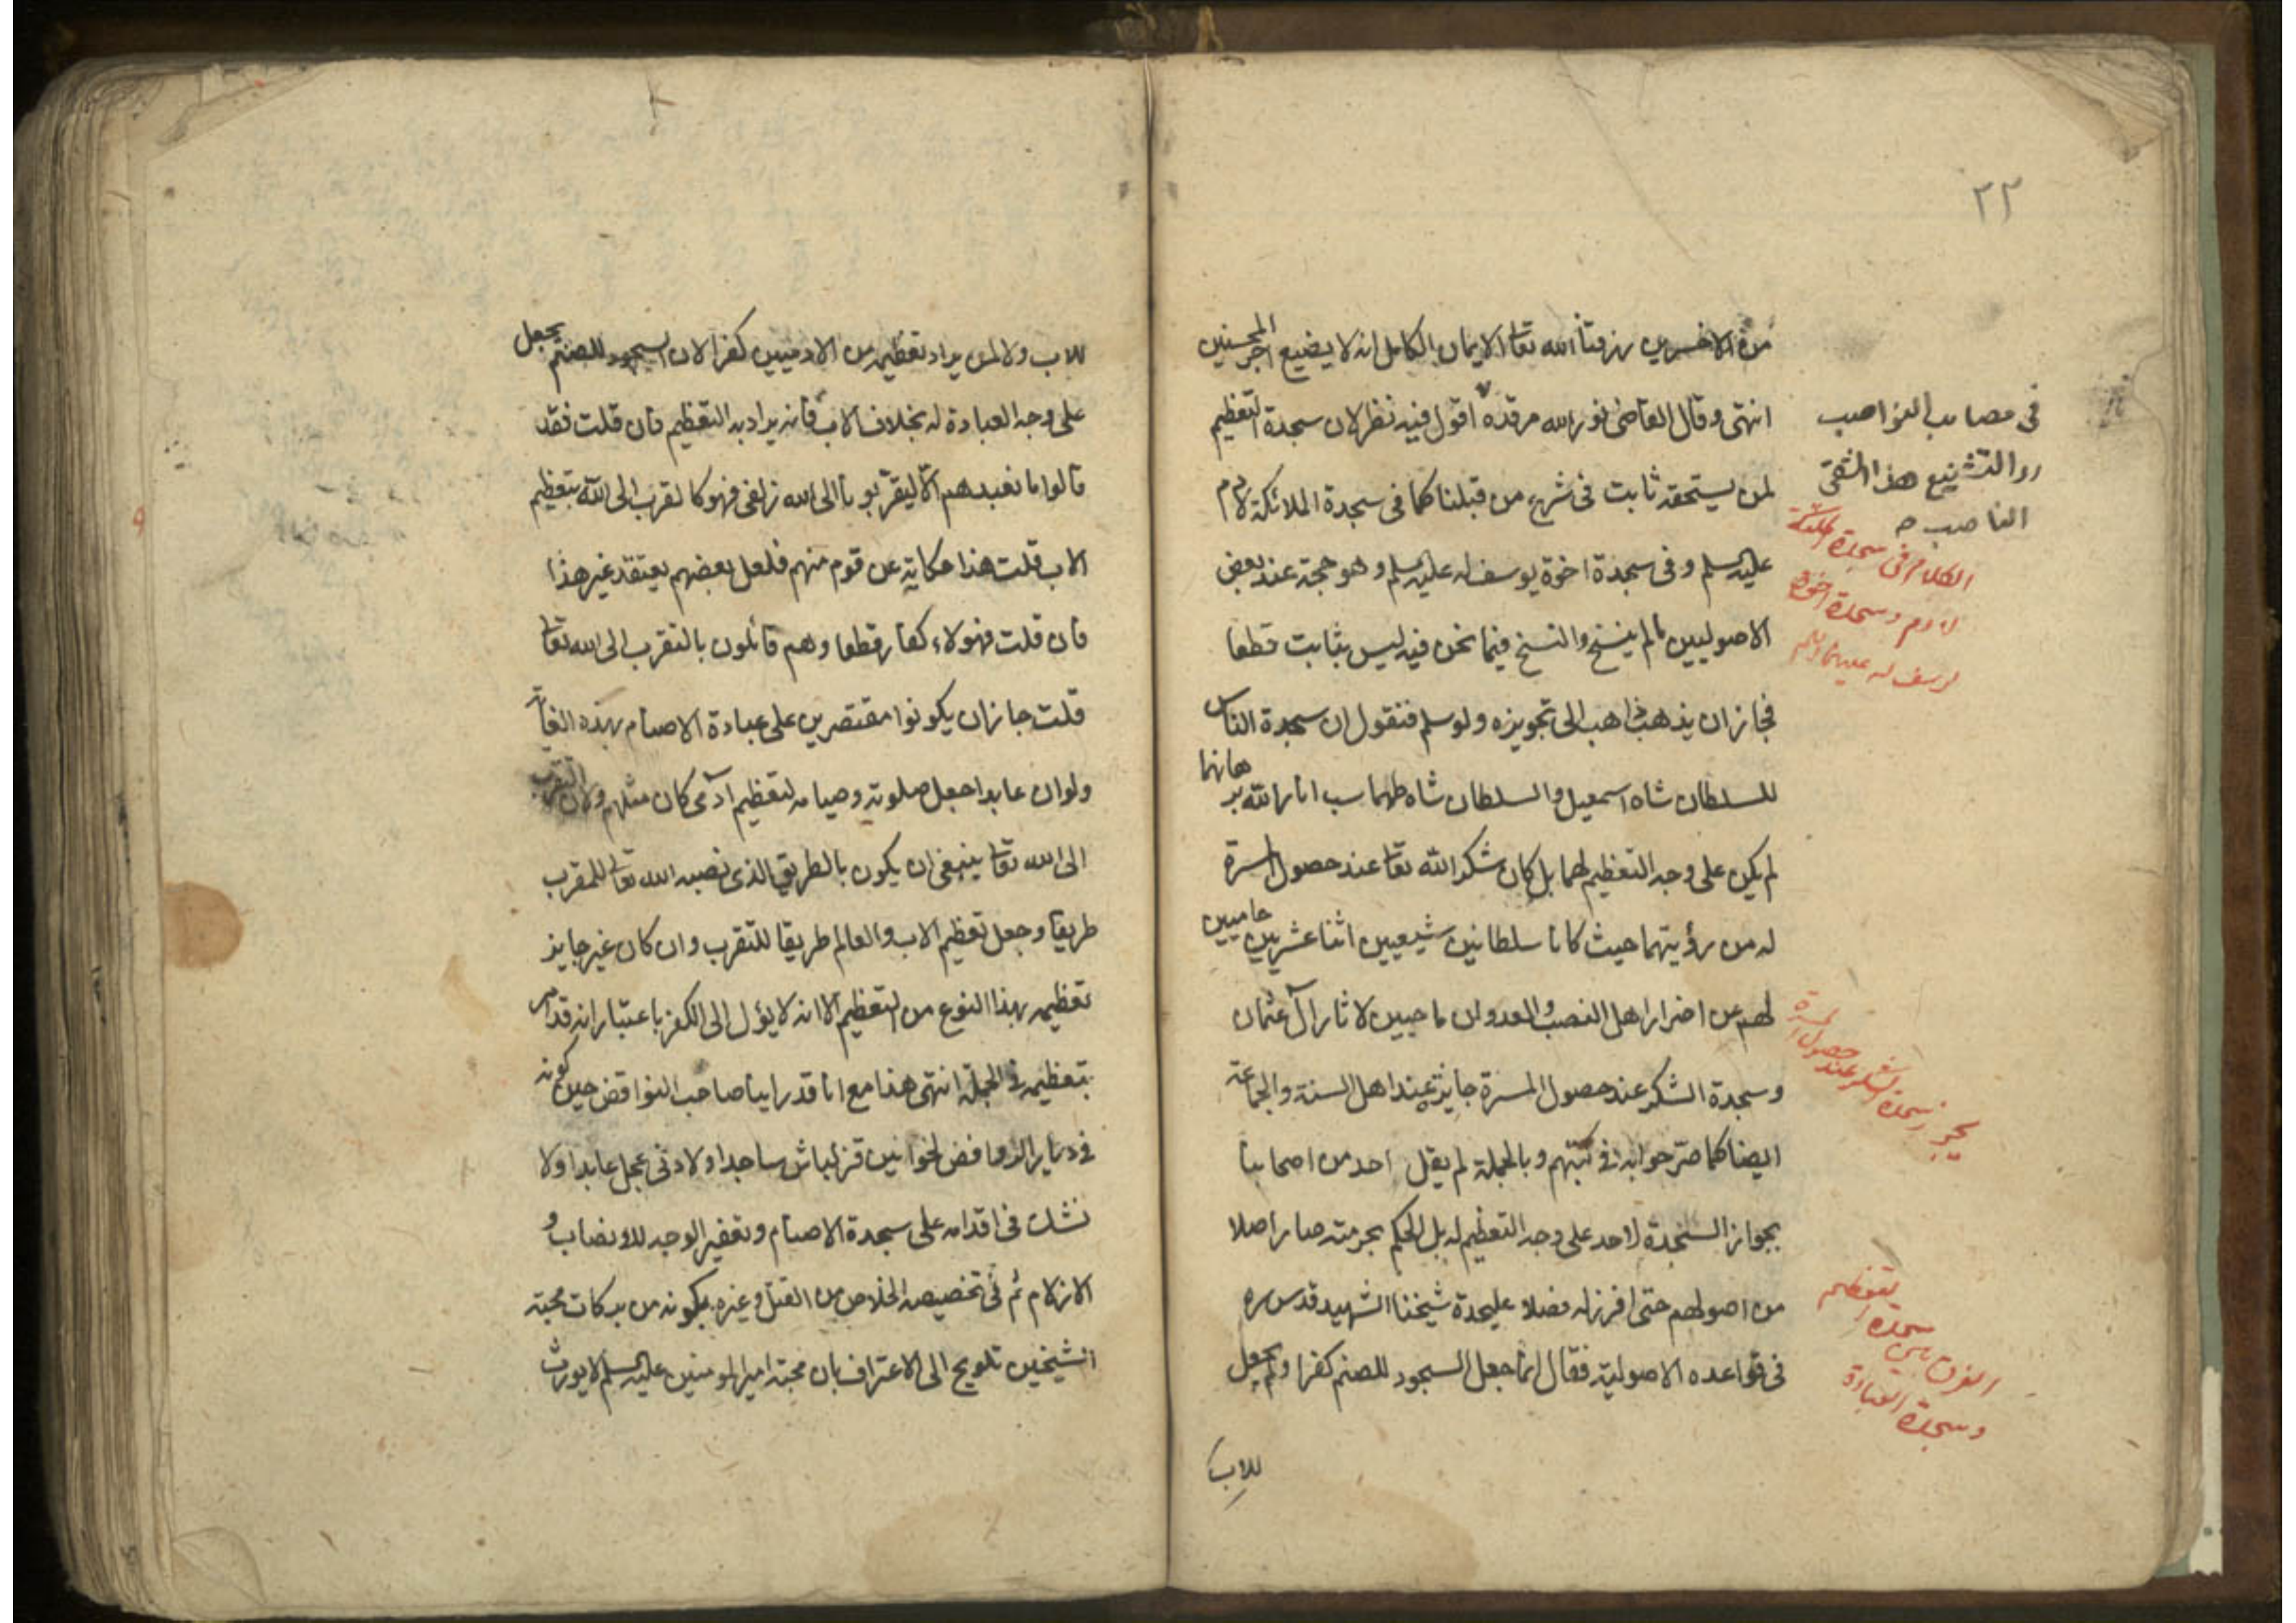 ٢٢
من الاخسرين رزقنا الله تعا الايمان الكامل انه لا يضيع اجر المحسنين
انتهى وقال القاضى نور الله مرقده اقول فيه نظر لان سجدة التعظيم
لمن يستحقه ثابت فى شرع من قبلنا كما فى سجدة الملائكة لادم
عليه السلم وفى سجدة اخوة يوسف له عليه السلم وهو حجة عند بعض
الاصوليين ما لم ينسخ والنسخ فيما نحن فيه ليس بثابت قطعا
فجاز ان يذهب ذاهب الى تجويزه ولو سلم فنقول ان سجدة الناس
للسلطان شاه اسمعيل والسلطان شاه طهماسب انار الله برهانهما
لم يكن على وجه التعظيم لهما بل كان شكر الله تعا عند حصول المسرة
له من رؤيتهما حيث كانا سلطانين شيعيين اثنا عشريين حاميين
لهم عن اضرار اهل النصب والعدوان ماحيين لاثار آل عثمان
وسجدة الشكر عند حصول المسرة جايزة عند اهل السنة والجماعة
ايضا كما صرحوا به فى كتبهم وبالجملة لم يقل احد من اصحابنا
بجواز السجدة لاحد على وجه التعظيم له بل الحكم بحرمته صار اصلا
من اصولهم حتى افرز له فصلا عليحدة شيخنا الشهيد قدس سره
فى قواعده الاصولية فقال انما جعل السجود للصنم كفرا ولم يجعل
للاب
فى مصايب النواصب
رد التشنيع هذا الشقى
الناصب
الكلام فى سجدة الملئكة
لادم وسجدة اخوة
يوسف له عليهما السلم
يجوز سجدة الشكر عند حصول المسرة
الفرق بين سجدة التعظيم
وسجدة العبادة
للاب ولا لمن يراد تعظيمه من الادميين كفرا لان السجود للصنم يجعل
على وجه العبادة له بخلاف الاب فانه يراد به التعظيم فان قلت فقد
قالوا ما نعبدهم الا ليقربونا الى الله زلفى فهو كالتقرب الى الله بتعظيم
الاب قلت هذا حكاية عن قوم منهم فلعل بعضهم يعتقد غير هذا
فان قلت فهولاء كفار قطعا وهم قائلون بالتقرب الى الله تعا
قلت جاز ان يكونوا مقتصرين على عبادة الاصنام بهذه الغاية
ولو ان عابدا جعل صلوته وصيامه لتعظيم آدمى كان مثلهم ولان التقرب
الى الله تعا ينبغى ان يكون بالطريق الذى نصبه الله تعا للمقرب
طريقا وجعل تعظيم الاب والعالم طريقا للتقرب وان كان غير جايز
تعظيمه بهذا النوع من التعظيم الا انه لا يؤل الى الكفر باعتبار انه قد امر
بتعظيمه فى الجملة انتهى هذا مع انا قد راينا صاحب النواقض حين كونه
فى ديار الروافض لخوانين قزلباش ساجدا ولادنى عجل عابدا ولا
نشك فى اقدامه على سجدة الاصنام وتعفير الوجه للانصاب و
الازلام ثم فى تخصيصه الخلاص من القتل وغيره بكونه من بركات محبة
الشيخين تلويح الى الاعتراف بان محبة امير المومنين عليه السلم لا يورث